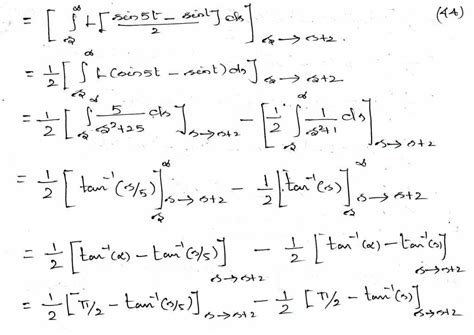 = [ ∫_s^∞ L[ (sin5t − sint)/2 ] ds ]_{s→s+2} (44)
= 1/2 [ ∫_s^∞ L(sin5t − sint) ds ]_{s→s+2}
= 1/2 [ ∫_s^∞ 5/(s²+25) ds ]_{s→s+2} − [ 1/2 ∫_s^∞ 1/(s²+1) ds ]_{s→s+2}
= 1/2 [ tan⁻¹(s/5) ]_s^∞ _{s→s+2} − 1/2 [ tan⁻¹(s) ]_s^∞ _{s→s+2}
= 1/2 [ tan⁻¹(∞) − tan⁻¹(s/5) ]_{s→s+2} − 1/2 [ tan⁻¹(∞) − tan⁻¹(s) ]_{s→s+2}
= 1/2 [ π/2 − tan⁻¹(s/5) ]_{s→s+2} − 1/2 [ π/2 − tan⁻¹(s) ]_{s→s+2}